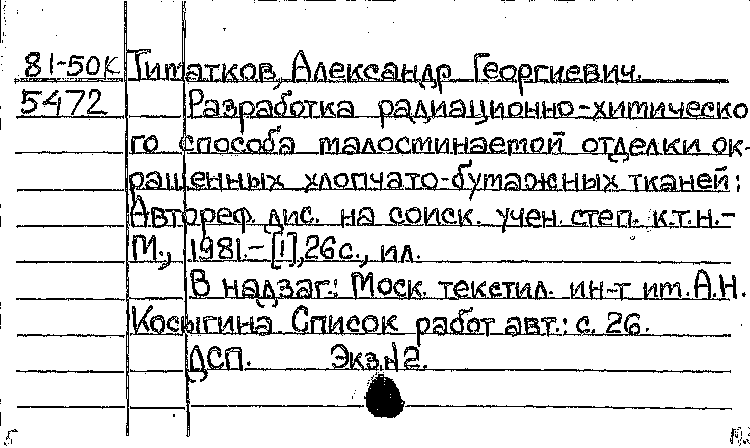 81-50К Титатков, Александр Георгиевич.
5472 Разработка радиационно-химическо
го способа малосминаемой отделки ок-
рашенных хлопчато-бумажных тканей:
Автореф. дис. на соиск. учен. степ. к.т.н.-
М., 1981.- [1], 26 с., ил.
В надзаг.: Моск. текстил. ин-т им. А.Н.
Косыгина Список работ авт.: с. 26.
ДСП. Экз.№2.